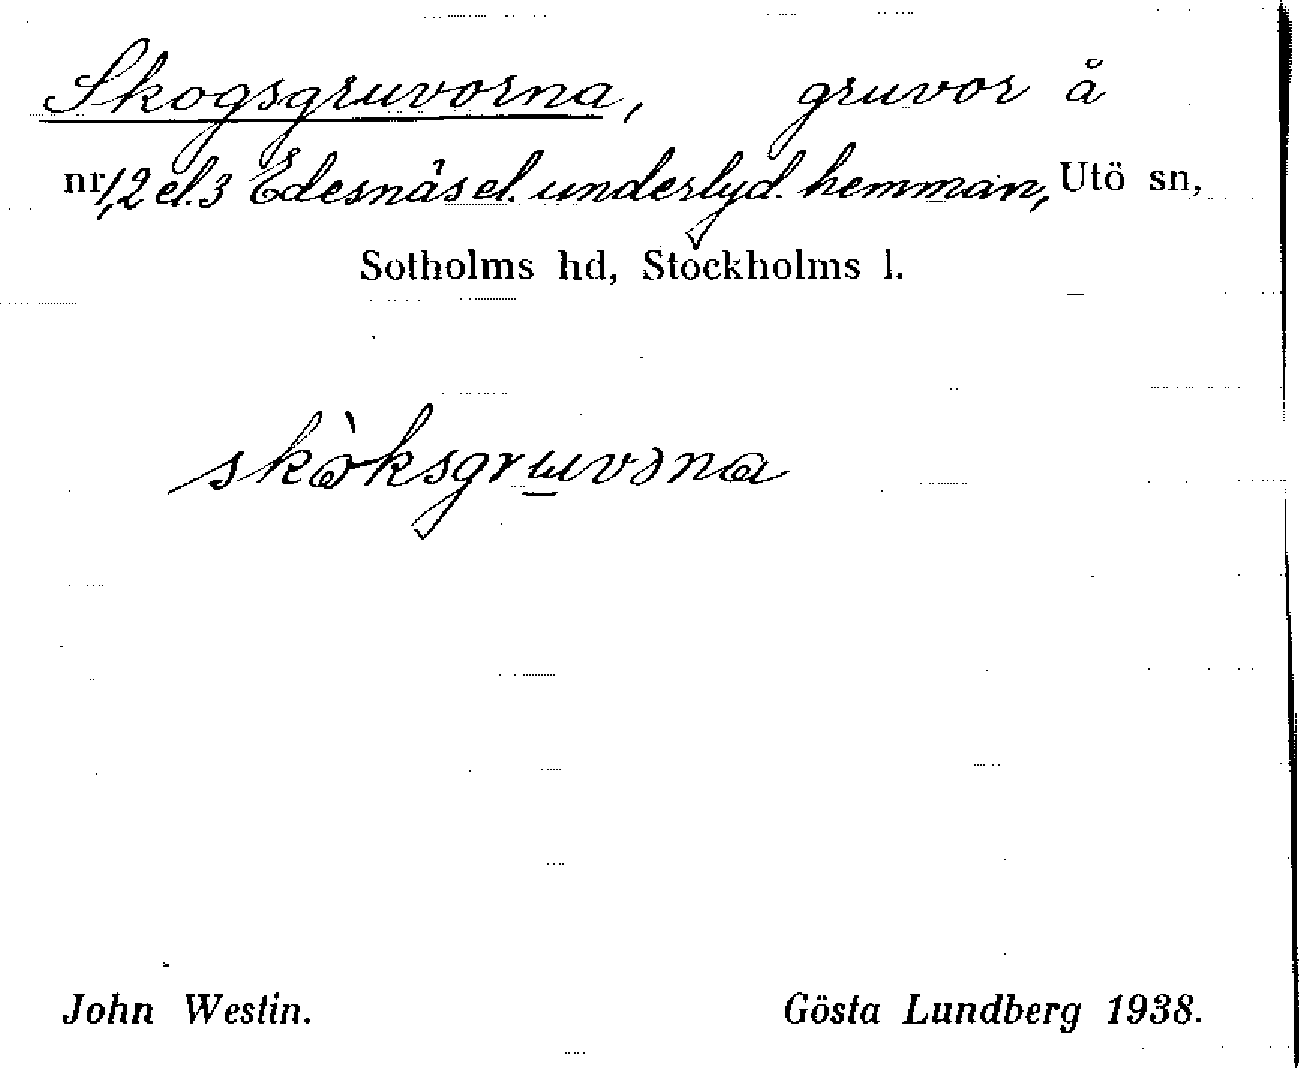 Skogsgruvorna, gruvor å
nr 1,2 el. 3 Edesnäs el. underlyd. hemman, Utö sn,
Sotholms hd, Stockholms l.
skòksgru̲vɔna
John Westin. Gösta Lundberg 1938.